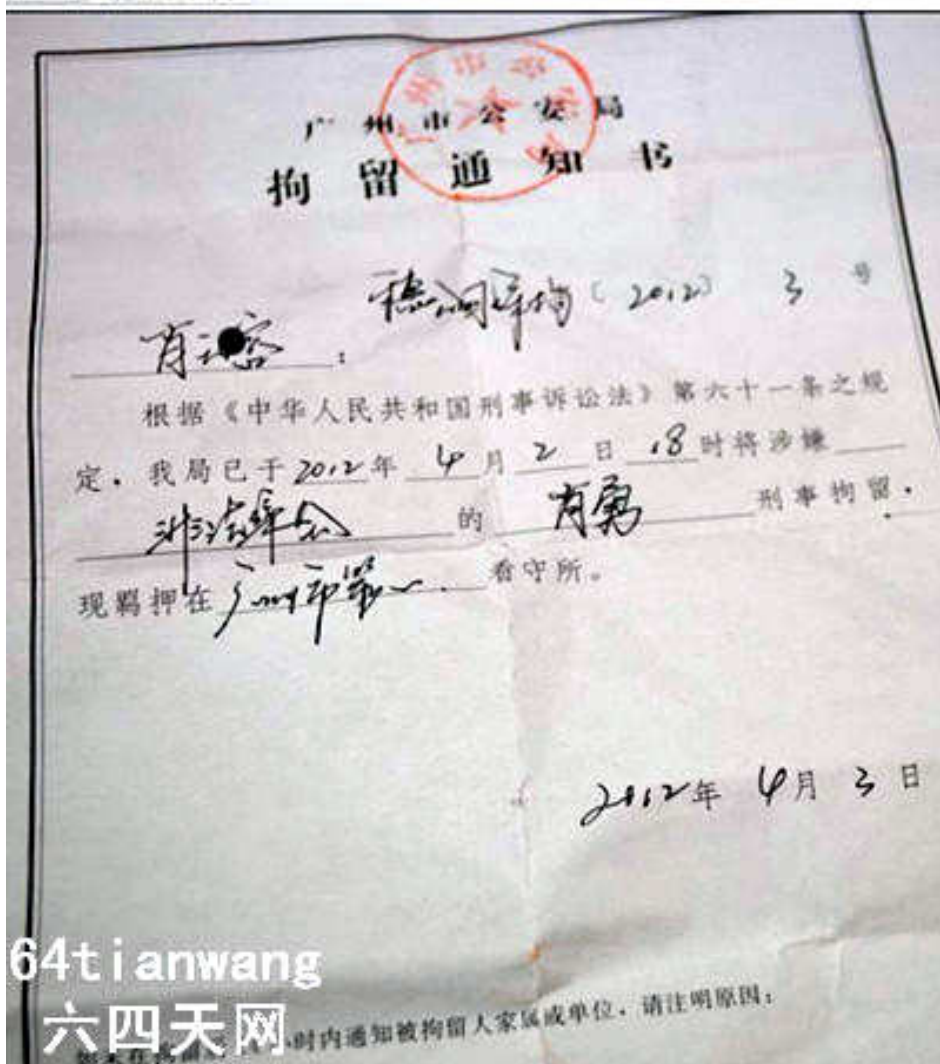 广州市公安局
拘留通知书
〔2012〕3号
肖
:
根据《中华人民共和国刑事诉讼法》第六十一条之规
定,我局已于2012年4月2日18时将涉嫌
非法集会的肖勇刑事拘留。
现羁押在广州市第一看守所。
2012年4月3日
64tianwang
六四天网
小时内通知被拘留人家属或单位,请注明原因: